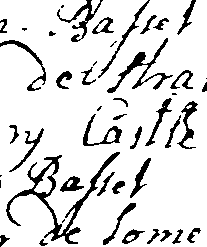 . Basset
de Stra
ry Castle
Basset
de Some